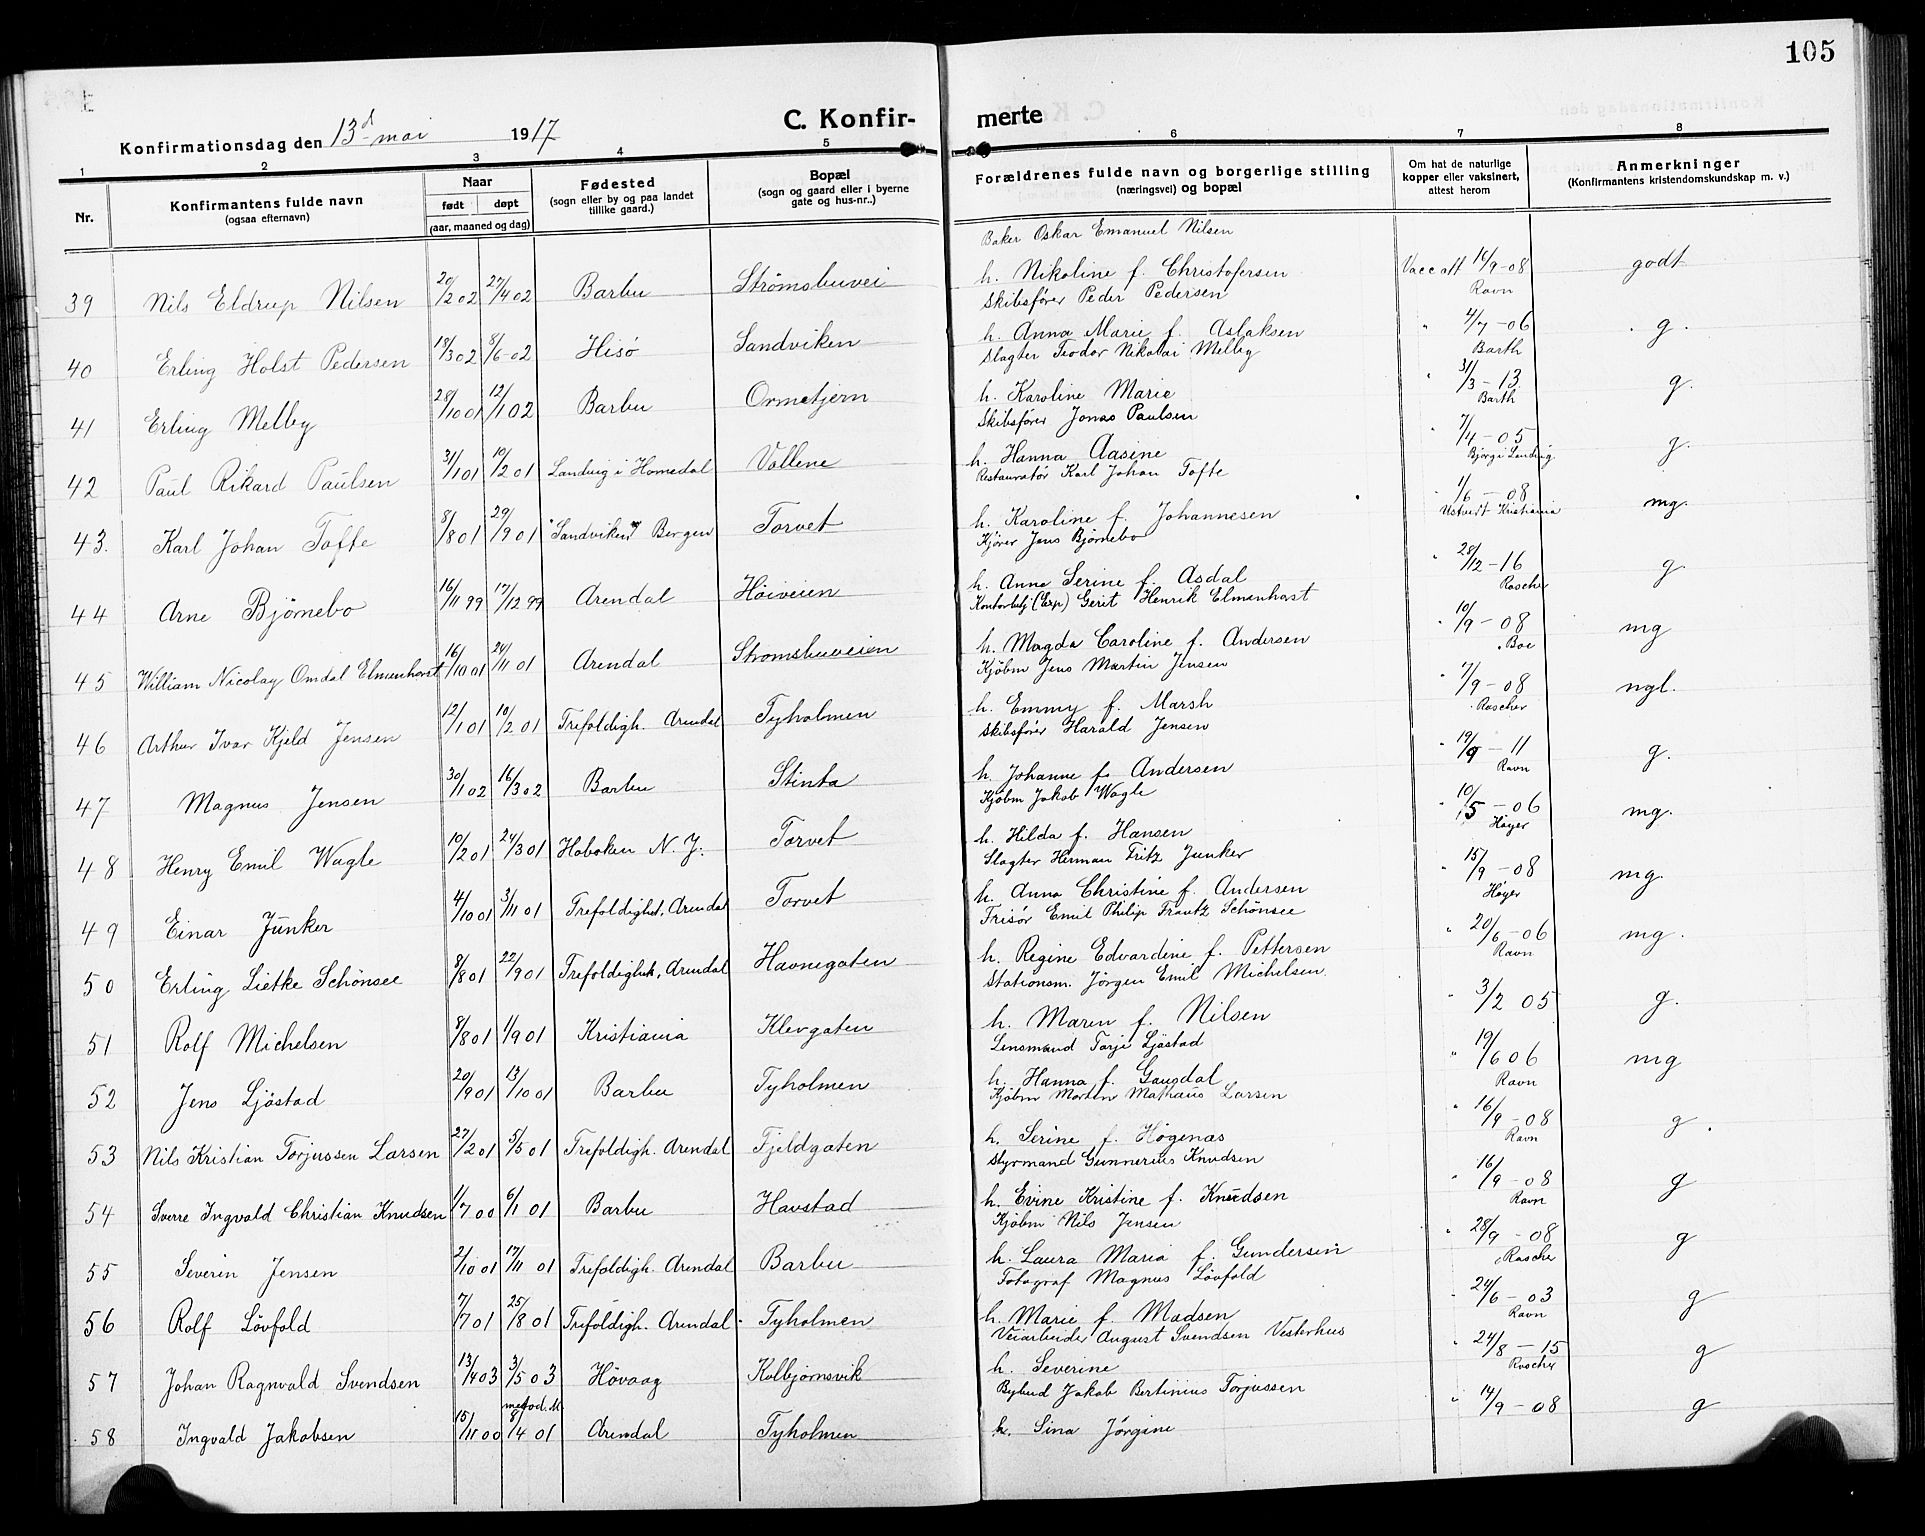 105
C. Konfir- merte
Konfirmationsdag den 13d mai 1917
1 2 3 4 5 6 7 8
Nr.
Konfirmantens fulde navn
(ogsaa efternavn)
Naar
født døpt
(aar, maaned og dag)
Fødested
(sogn eller by og paa landet
tillike gaard.)
Bopæl
(sogn og gaard eller i byerne
gate og hus-nr..)
Forældrenes fulde navn og borgerlige stilling
(næringsvei) og bopæl
Om hat de naturlige
kopper eller vaksinert,
attest herom
Anmerkninger
(Konfirmantens kristendomskundskap m. v.)
Baker Oskar Emanuel Nilsen
39 Nils Eldrup Nilsen 20/2 02 27/4 02 Barbu Strømsbuvei h. Nikoline f. Christofersen Vacc att 16/9-08 Ravn godt
Skibsfører Peder Pedersen
40 Erling Holst Pedersen 19/3 02 8/6-02 Hisø Sandviken h. Anna Marie f. Aslaksen " 4/7-06 Barth g.
Slagter Teodor Nikolai Melby
41 Erling Melby 28/10 01 12/1 02 Barbu Ormetjern h. Karoline Marie " 31/3-13 Barth g.
Skibsfører Jonas Paulsen
42 Paul Rikard Paulsen 31/1 01 10/2 01 Landvig i Homedal Vollene h. Hanna Aasine " 7/4-05 g.
Restauratør Karl Johan Tofte
43. Karl Johan Tofte 8/8 01 29/9 01 Sandviken, Bergen Torvet h. Karoline f. Johannesen " 1/6-08 Ustvedt Kristiania mg.
Kjører Jens Bjørnebo
44 Arne Bjørnebo 16/11 99 17/12 99 Arendal Höiveien h. Anne Serine f. Asdal " 28/12-16 Rascher g
Kontorbetj (Exp) Gerit Henrik Elmenhorst
45 William Nicolay Omdal Elmenhorst 16/10 01 24/11 01 Arendal Stromsbuveien h. Magda Caroline f. Andersen " 10/9-08 Boe mg
Kjøbm Jens Martin Jensen
46 Arthur Ivar Kjeld Jensen 12/1 01 10/2 01 Trefoldigh. Arendal Tyholmen h. Emmy f. Marsh " 7/9-08 Rascher ngl.
Skibsfører Harald Jensen
47 Magnus Jensen 30/1 02 16/3 02 Barbu Stinta h. Johanne f. Andersen " 19/9-11 Ravn g.
Kjøbm Jakob Wagle
48 Henry Emil Wagle 10/2 01 24/3 01 Hoboken N. J. Torvet h. Hilda f. Hansen " 10/5-06 Høyer mg.
Slagter Herman Fritz Junker
49 Einar Junker 4/10 01 3/11 01 Trefoldighet, Arendal Torvet h. Anna Christine f. Andersen " 15/9-08 Høyer mg.
Frisør Emil Philip Frantz Schönsee
50 Erling Lietke Schönsee 8/8 01 22/9 01 Trefoldighet, Arendal Havnegaten h. Regine Edvardine f. Pettersen " 20/6-06 Ravn mg.
Stationsm. Jörgen Emil Michelsen
51 Rolf Michelsen 8/8 01 1/9 01 Kristiania Klevgaten h. Maren f. Nilsen " 3/2 05 g.
Lensmand Torje Ljöstad
52 Jens Ljöstad 20/9 01 13/10 01 Barbu Tyholmen h. Hanna f. Gausdal " 19/6 06 Ravn mg
Kjöbm Morten Mathæus Larsen
53 Nils Kristian Torjussen Larsen 27/2 01 5/5 01 Trefoldigh. Arendal Fjeldgaten h. Serine f. Høgenæs " 16/9-08 Ravn g.
Styrmand Gunnerius Knudsen
54 Sverre Ingvald Christian Knudsen 1/7 00 6/1 01 Barbu Havstad h. Evine Kristine f. Knudsen " 16/9-08 Ravn g
Kjöbm Nils Jensen
55 Severin Jensen 2/10 01 17/11 01 Trefoldigh. Arendal Barbu h. Laura Maria f. Gundersen " 28/9-08 Rascher g
Fotograf Magnus Lövfold
56 Rolf Lövfold 7/7 01 25/8 01 Trefoldigh. Arendal Tyholmen h. Marie f. Madsen " 24/6-03 Ravn g
Veiarbeider August Svendsen Vesterhus
57 Johan Ragnvald Svendsen 13/4 03 3/5 03 Hövaag Kolbjørnsvik h. Severine " 24/8-15 Rascher g
Bybud Jakob Bertinius Torjussen
58 Ingvald Jakobsen 15/11 00 metod. M. 8/4 01 Arendal Tyholmen h. Sina Jørgine " 14/9-08 g